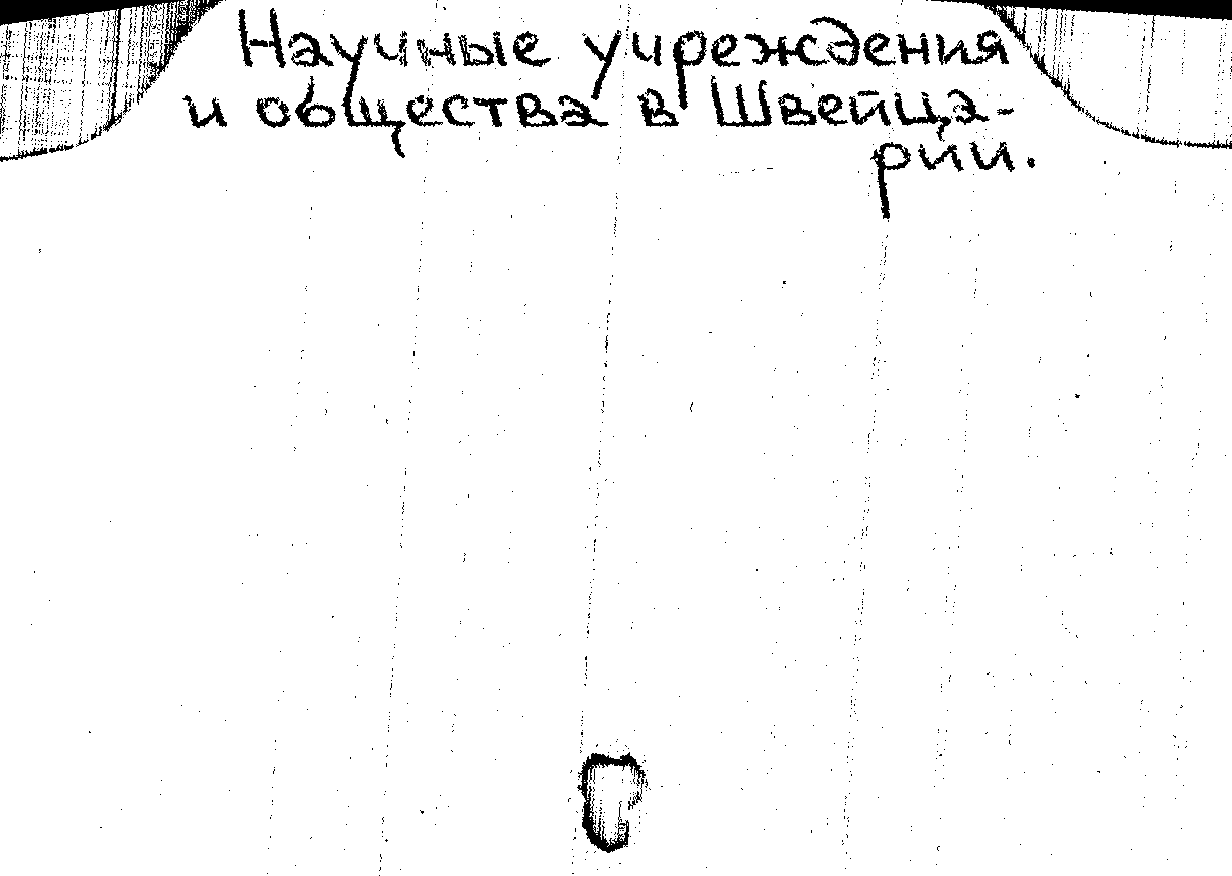 Научные учреждения
и общества в Швейца-
рии.